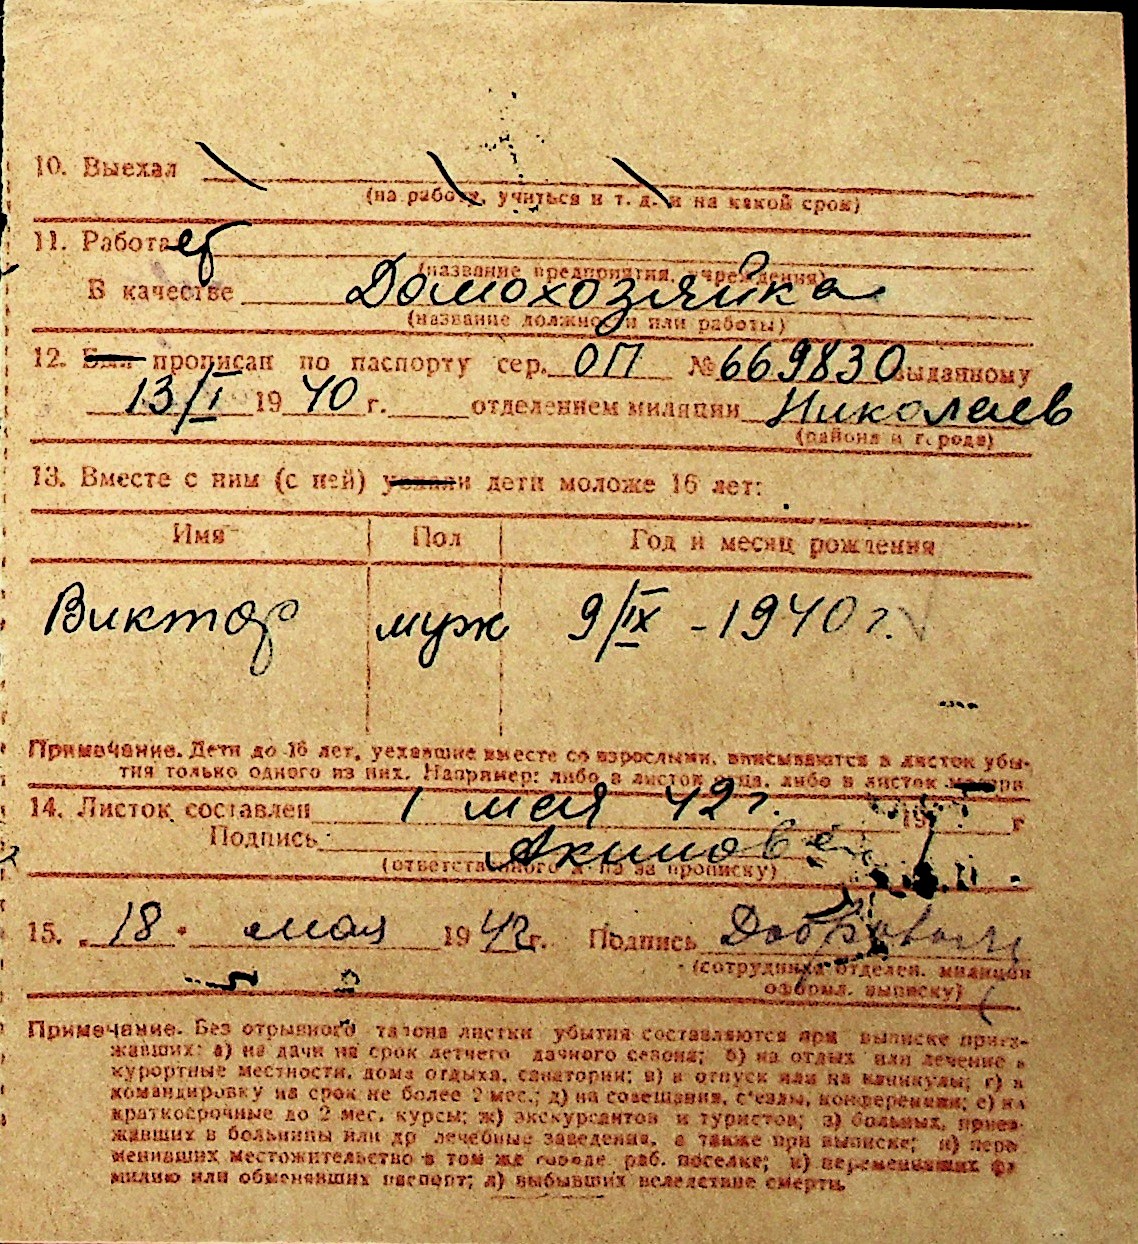 10. Выехал
(на работу, учиться и т. д. и на какой срок)
11. Работает
(название предприятия, учреждения)
В качестве Домохозяйка
(название должности или работы)
12. Был прописан по паспорту сер. ОП № 669830 выданному
13/I 1940 г. отделением милиции Николаев
(района и города)
13. Вместе с ним (с ней) уехали дети моложе 16 лет:
Имя Пол Год и месяц рождения
Виктор муж 9/IX - 1940 г.
Примечание. Дети до 16 лет, уехавшие вместе со взрослыми, вписываются в листок убы-
тия только одного из них. Например: либо в листок отца, либо в листок матери
14. Листок составлен 1 мая 42 г. 19 г
Подпись Акимова
(ответственного за прописку)
15. „18" мая 1942 г. Подпись
(сотрудника отделен. милиции
оформл. выписку)
Примечание. Без отрывного талона листки убытия составляются при выписке приез-
жавших: а) на дачи на срок летнего дачного сезона; б) на отдых или лечение в
курортные местности, дома отдыха, санатории; в) в отпуск или на каникулы; г) в
командировку на срок не более 2 мес.; д) на совещания, съезды, конференции; е) на
краткосрочные до 2 мес. курсы; ж) экскурсантов и туристов; з) больных, приез-
жавших в больницы или др лечебные заведения, а также при выписке; и) пере
менивших местожительство в том же городе, раб. поселке; к) переменивших фа
милию или обменявших паспорт; л) выбывших вследствие смерти.